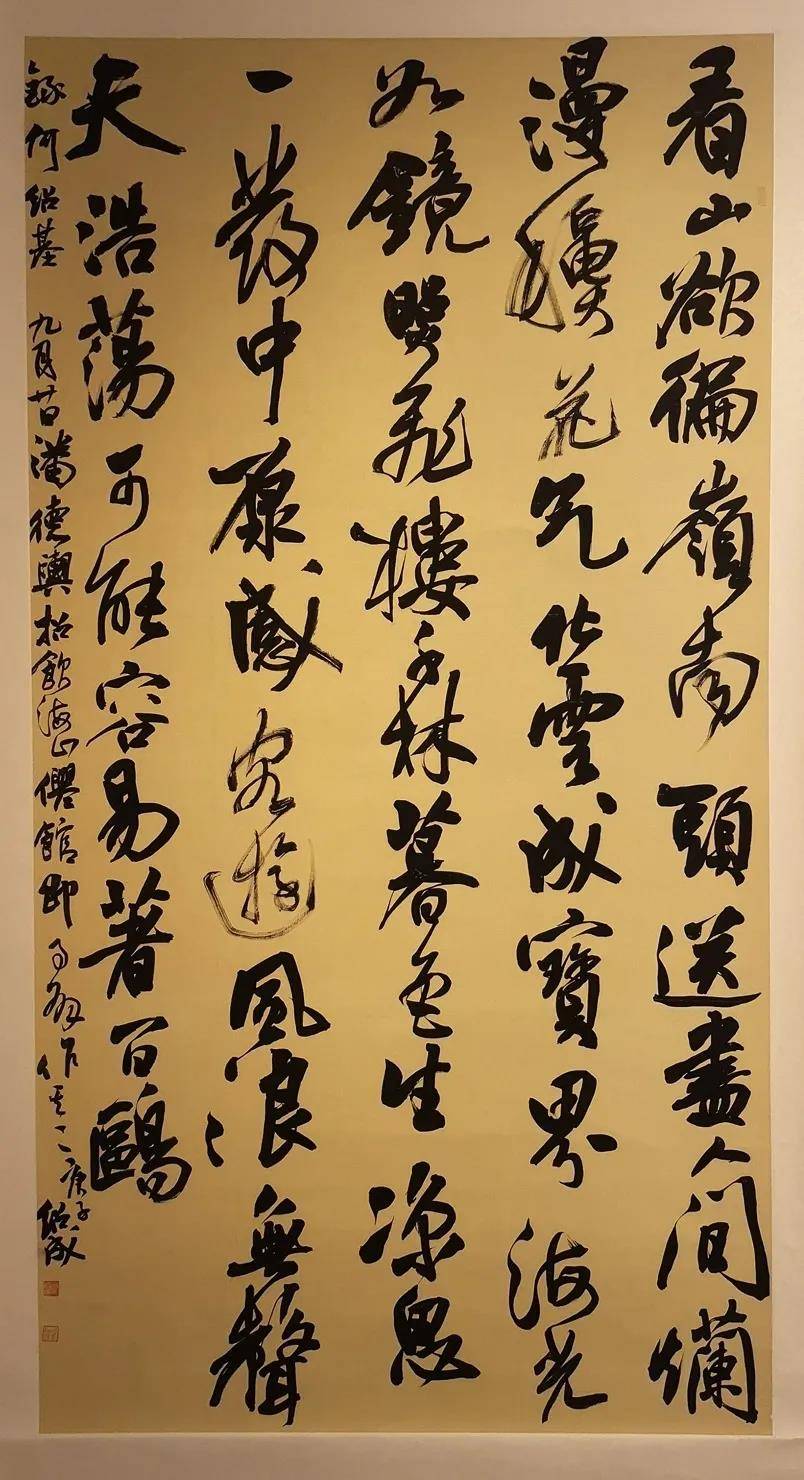 看山欲徧嶺南頭送盡人間爛
漫龝花气化雲成寶界海光
如鏡照飛樓千林暮色生涼思
一發中原感客遊風浪無聲
天浩蕩可能容易著百鷗
錄何紹基 九月廿日潘德輿招飲海山僊館即事作其二 庚子